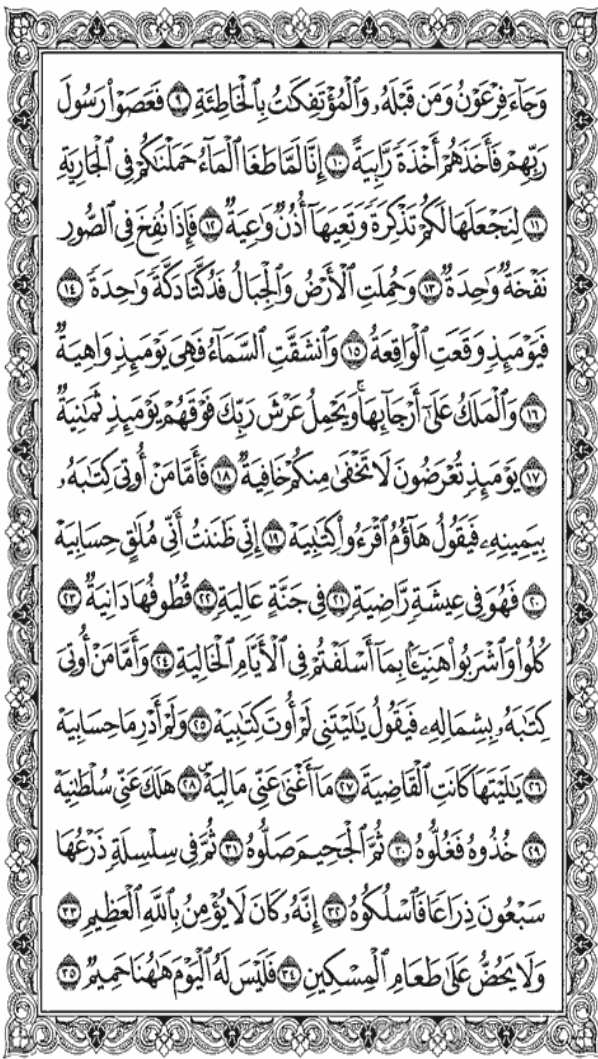 وَجَآءَ فِرۡعَوۡنُ وَمَن قَبۡلَهُۥ وَٱلۡمُؤۡتَفِكَٰتُ بِٱلۡخَاطِئَةِ ٩ فَعَصَوۡاْ رَسُولَ
رَبِّهِمۡ فَأَخَذَهُمۡ أَخۡذَةٗ رَّابِيَةً ١٠ إِنَّا لَمَّا طَغَا ٱلۡمَآءُ حَمَلۡنَٰكُمۡ فِي ٱلۡجَارِيَةِ
١١ لِنَجۡعَلَهَا لَكُمۡ تَذۡكِرَةٗ وَتَعِيَهَآ أُذُنٞ وَٰعِيَةٞ ١٢ فَإِذَا نُفِخَ فِي ٱلصُّورِ
نَفۡخَةٞ وَٰحِدَةٞ ١٣ وَحُمِلَتِ ٱلۡأَرۡضُ وَٱلۡجِبَالُ فَدُكَّتَا دَكَّةٗ وَٰحِدَةٗ ١٤
فَيَوۡمَئِذٖ وَقَعَتِ ٱلۡوَاقِعَةُ ١٥ وَٱنشَقَّتِ ٱلسَّمَآءُ فَهِيَ يَوۡمَئِذٖ وَاهِيَةٞ
١٦ وَٱلۡمَلَكُ عَلَىٰٓ أَرۡجَآئِهَاۚ وَيَحۡمِلُ عَرۡشَ رَبِّكَ فَوۡقَهُمۡ يَوۡمَئِذٖ ثَمَٰنِيَةٞ
١٧ يَوۡمَئِذٖ تُعۡرَضُونَ لَا تَخۡفَىٰ مِنكُمۡ خَافِيَةٞ ١٨ فَأَمَّا مَنۡ أُوتِيَ كِتَٰبَهُۥ
بِيَمِينِهِۦ فَيَقُولُ هَآؤُمُ ٱقۡرَءُواْ كِتَٰبِيَهۡ ١٩ إِنِّي ظَنَنتُ أَنِّي مُلَٰقٍ حِسَابِيَهۡ
٢٠ فَهُوَ فِي عِيشَةٖ رَّاضِيَةٖ ٢١ فِي جَنَّةٍ عَالِيَةٖ ٢٢ قُطُوفُهَا دَانِيَةٞ ٢٣
كُلُواْ وَٱشۡرَبُواْ هَنِيٓـَٔۢا بِمَآ أَسۡلَفۡتُمۡ فِي ٱلۡأَيَّامِ ٱلۡخَالِيَةِ ٢٤ وَأَمَّا مَنۡ أُوتِيَ
كِتَٰبَهُۥ بِشِمَالِهِۦ فَيَقُولُ يَٰلَيۡتَنِي لَمۡ أُوتَ كِتَٰبِيَهۡ ٢٥ وَلَمۡ أَدۡرِ مَا حِسَابِيَهۡ
٢٦ يَٰلَيۡتَهَا كَانَتِ ٱلۡقَاضِيَةَ ٢٧ مَآ أَغۡنَىٰ عَنِّي مَالِيَهۡۜ ٢٨ هَلَكَ عَنِّي سُلۡطَٰنِيَهۡ
٢٩ خُذُوهُ فَغُلُّوهُ ٣٠ ثُمَّ ٱلۡجَحِيمَ صَلُّوهُ ٣١ ثُمَّ فِي سِلۡسِلَةٖ ذَرۡعُهَا
سَبۡعُونَ ذِرَاعٗا فَٱسۡلُكُوهُ ٣٢ إِنَّهُۥ كَانَ لَا يُؤۡمِنُ بِٱللَّهِ ٱلۡعَظِيمِ ٣٣
وَلَا يَحُضُّ عَلَىٰ طَعَامِ ٱلۡمِسۡكِينِ ٣٤ فَلَيۡسَ لَهُ ٱلۡيَوۡمَ هَٰهُنَا حَمِيمٞ ٣٥